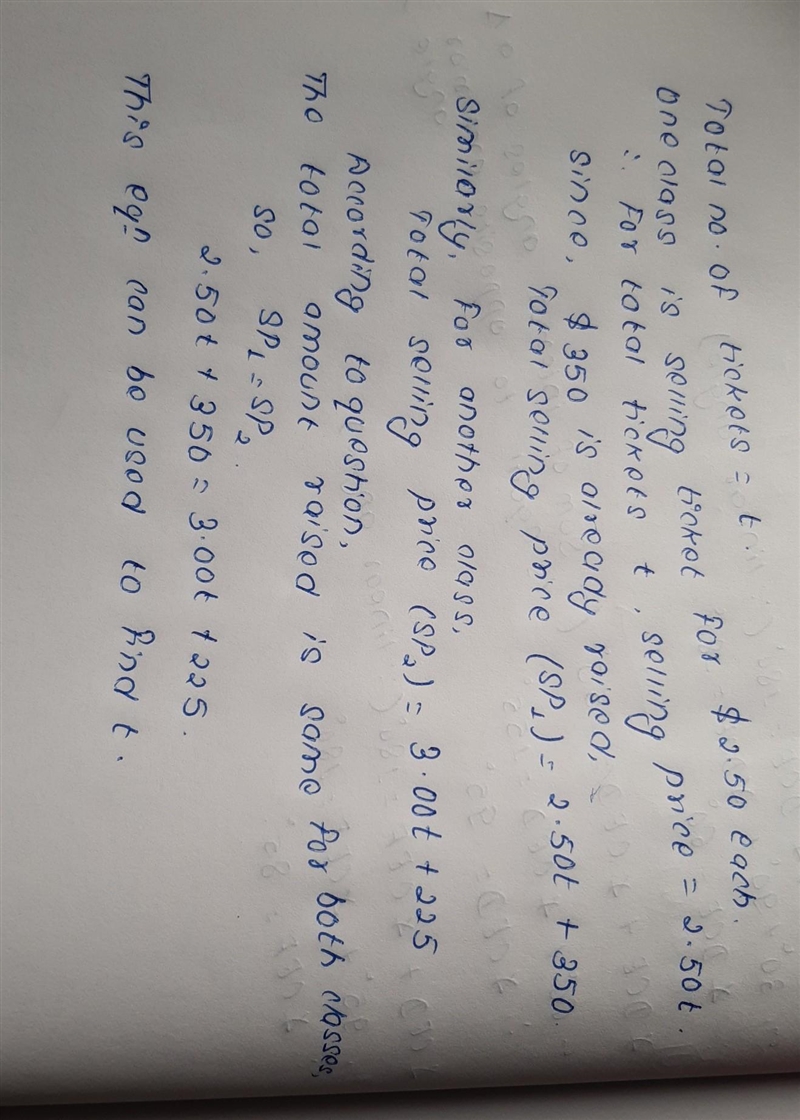 Total no. of tickets = t
One class is selling ticket for $2.50 each.
∴ For total tickets t, selling price = 2.50t.
Since, $350 is already raised,
Total selling price (SP₁) = 2.50t + 350.
Similarly, for another class,
Total selling price (SP₂) = 3.00t + 225
According to question,
The total amount raised is same for both classes,
So, SP₁ = SP₂.
2.50t + 350 = 3.00t + 225.
This eqⁿ can be used to find t.